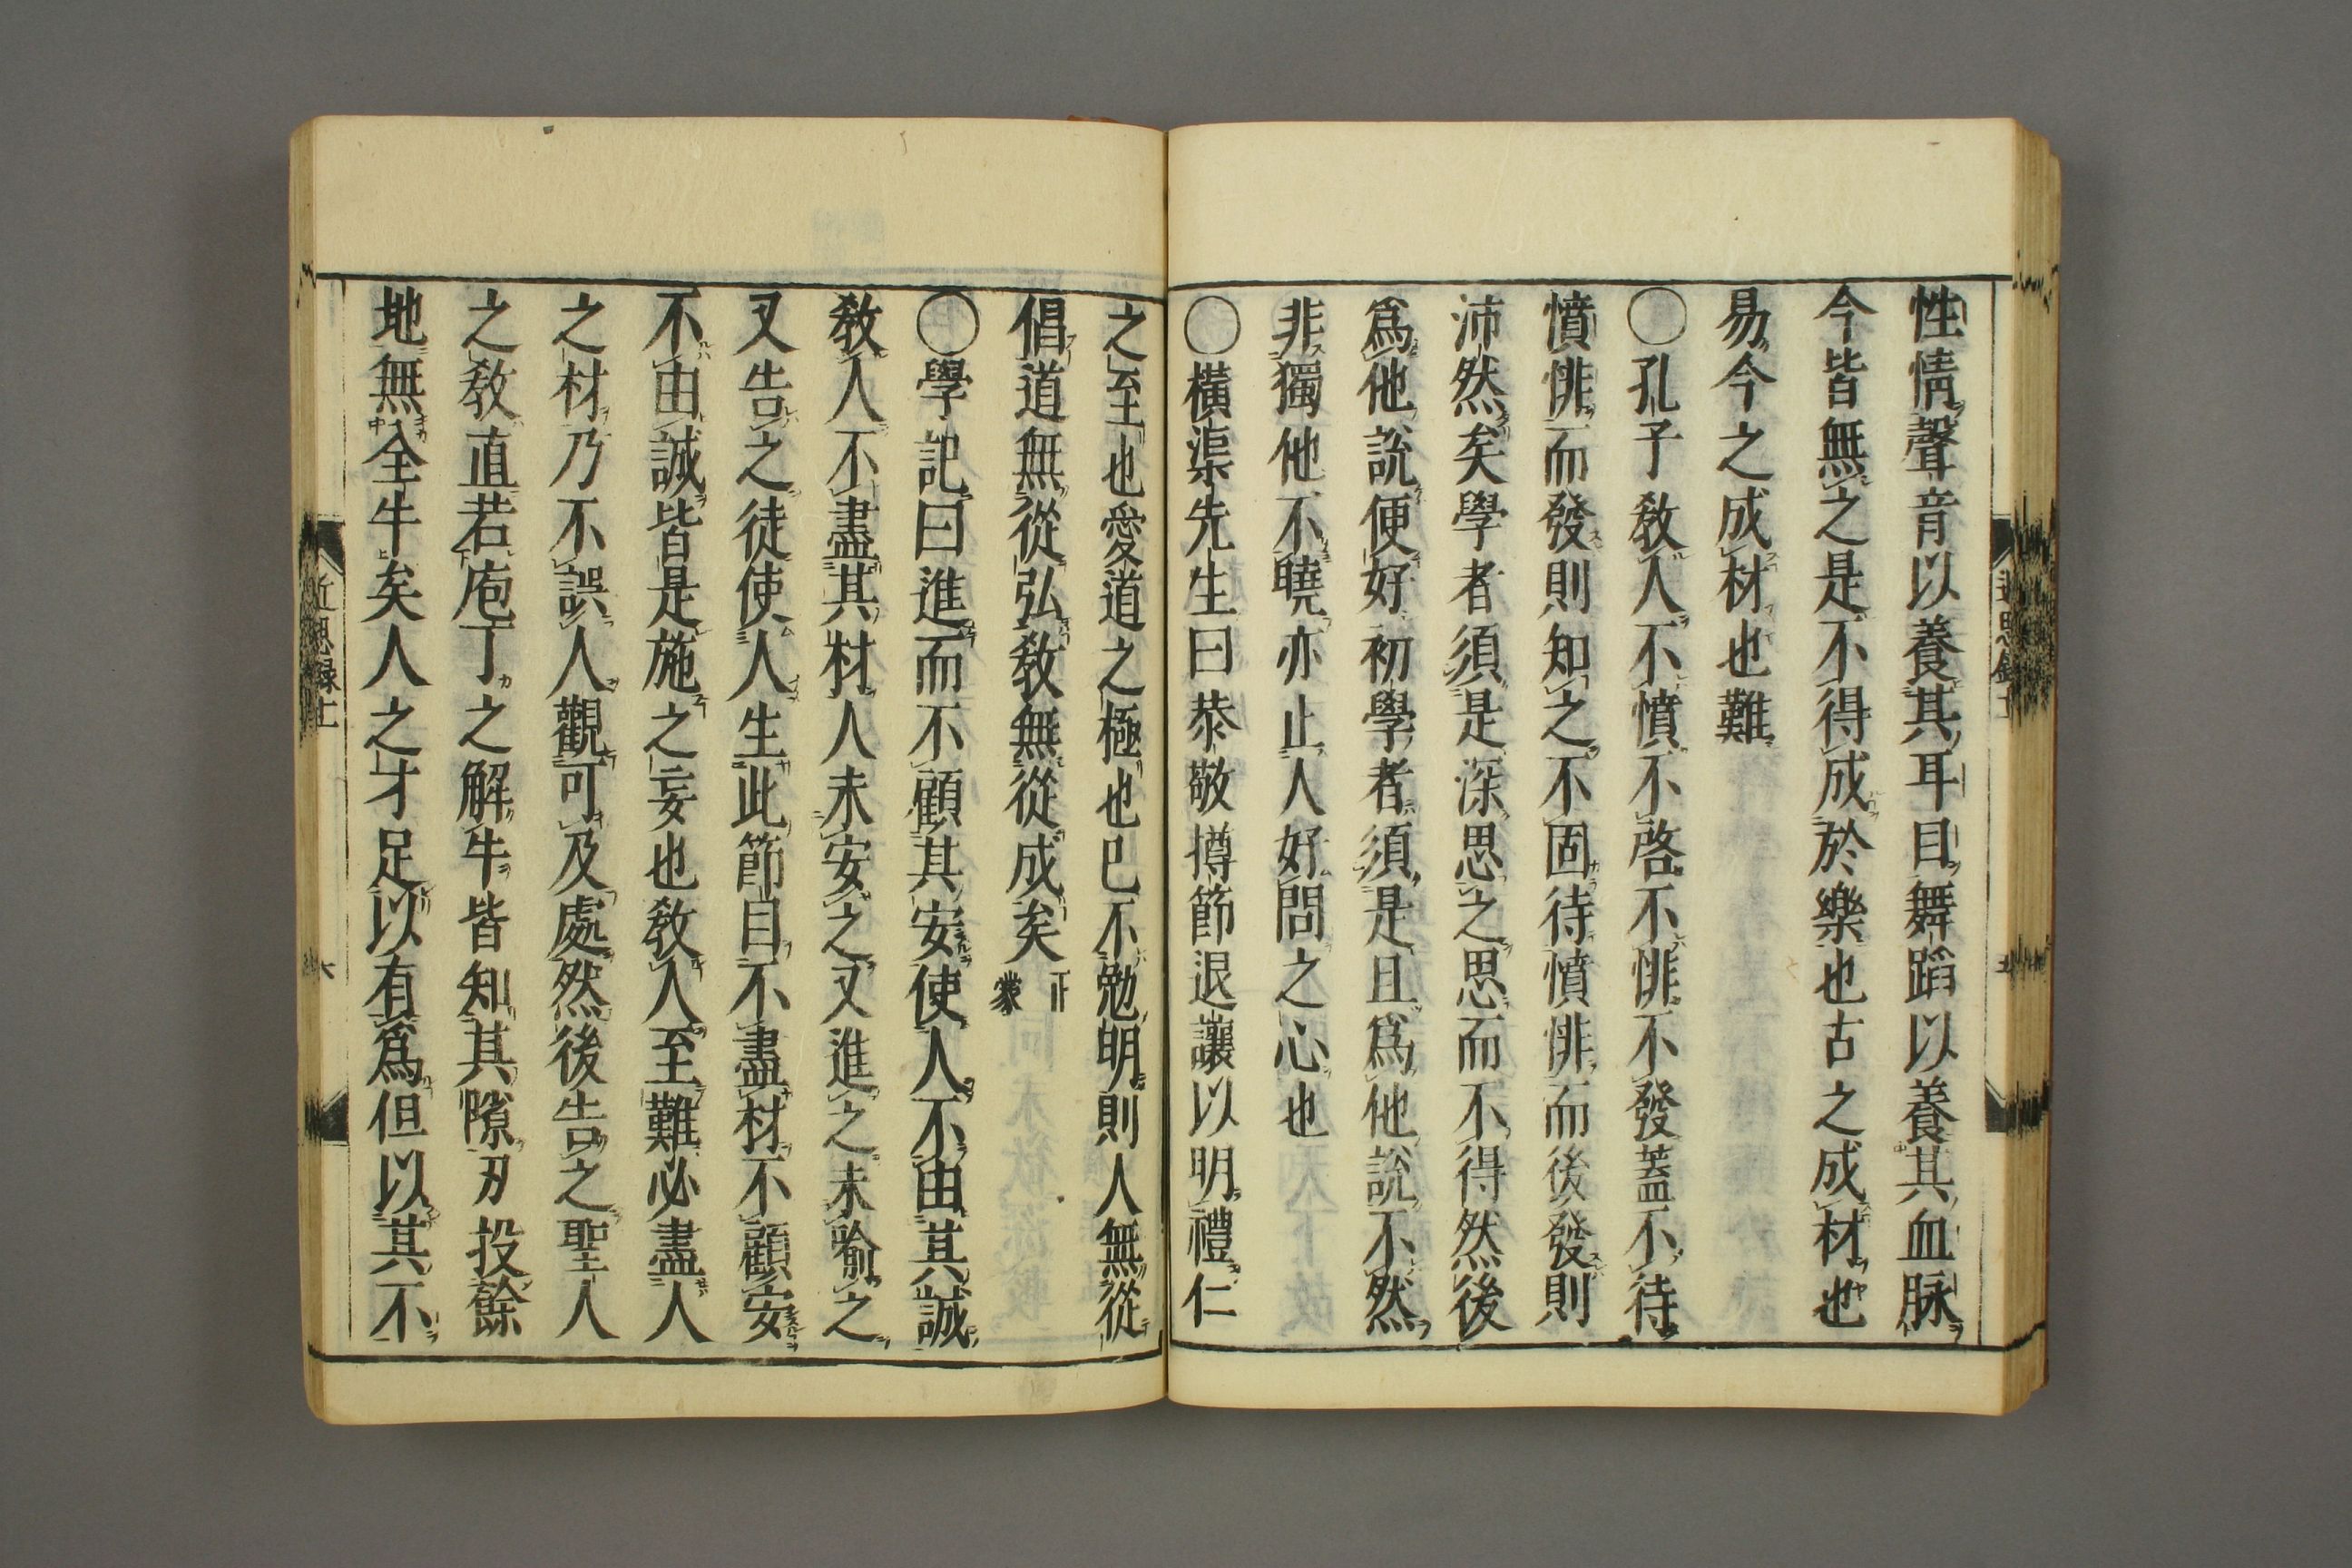 性情聲音以養其耳目舞蹈以養其血脉
今皆無之是不得成於樂也古之成材也
易今之成材也難
〇孔子敎人不憤不啓不悱不發蓋不待
憤悱而發則知之不固待憤悱而後發則
沛然矣學者須是深思之思而不得然後
爲他說便好初學者須是且爲他說不然
非獨他不曉亦止人好問之心也
〇橫渠先生曰恭敬撙節退讓以明禮仁
之至也愛道之極也已不勉明則人無從
倡道無從弘敎無從成矣正蒙
〇學記曰進而不顧其安使人不由其誠
敎人不盡其材人未安之又進之未喻之
又告之徒使人生此節目不盡材不顧安
不由誠皆是施之妄也敎人至難必盡人
之材乃不誤人觀可及處然後告之聖人
之敎直若庖丁之解牛皆知其隙刃投餘
地無全牛矣人之才足以有爲但以其不
近思錄十一
六